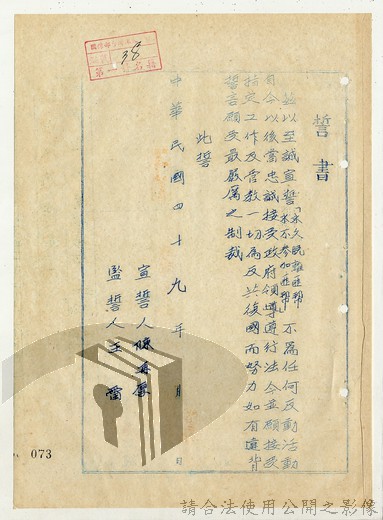 38
誓書
並以至誠宣誓「永久脫離匪幫」「永不參加匪幫」不為任何反動活動
自今以後當忠誠接受政府領導遵行法令並願接受
指定工作及管教一切為反共復國而努力如有違背
誓言願受最嚴厲之制裁
此誓
宣誓人陳
監誓人王雷
中華民國四十九年 月 日
073
請合法使用公開之影像